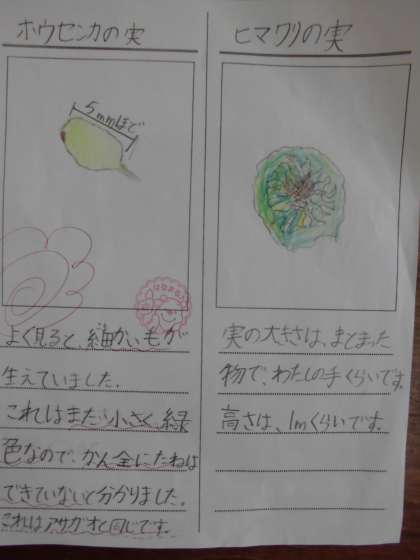 ホウセンカの実
5mmほど
よく見ると、細かいもが
生えていました。
これはまだ小さく、緑
色なので、かん全にたねは
できていないと分かりました。
これはアサガオと同じです。
ヒマワリの実
実の大きさは、まとまった
物で、わたしの手くらいです。
高さは、1mくらいです。